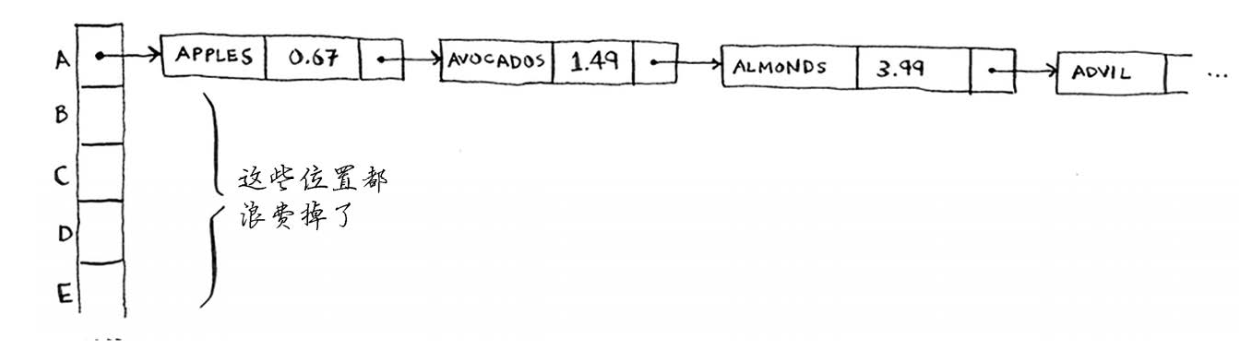 A APPLES 0.67 AVOCADOS 1.49 ALMONDS 3.99 ADVIL ...
B
C
这些位置都
浪费掉了
D
E
...